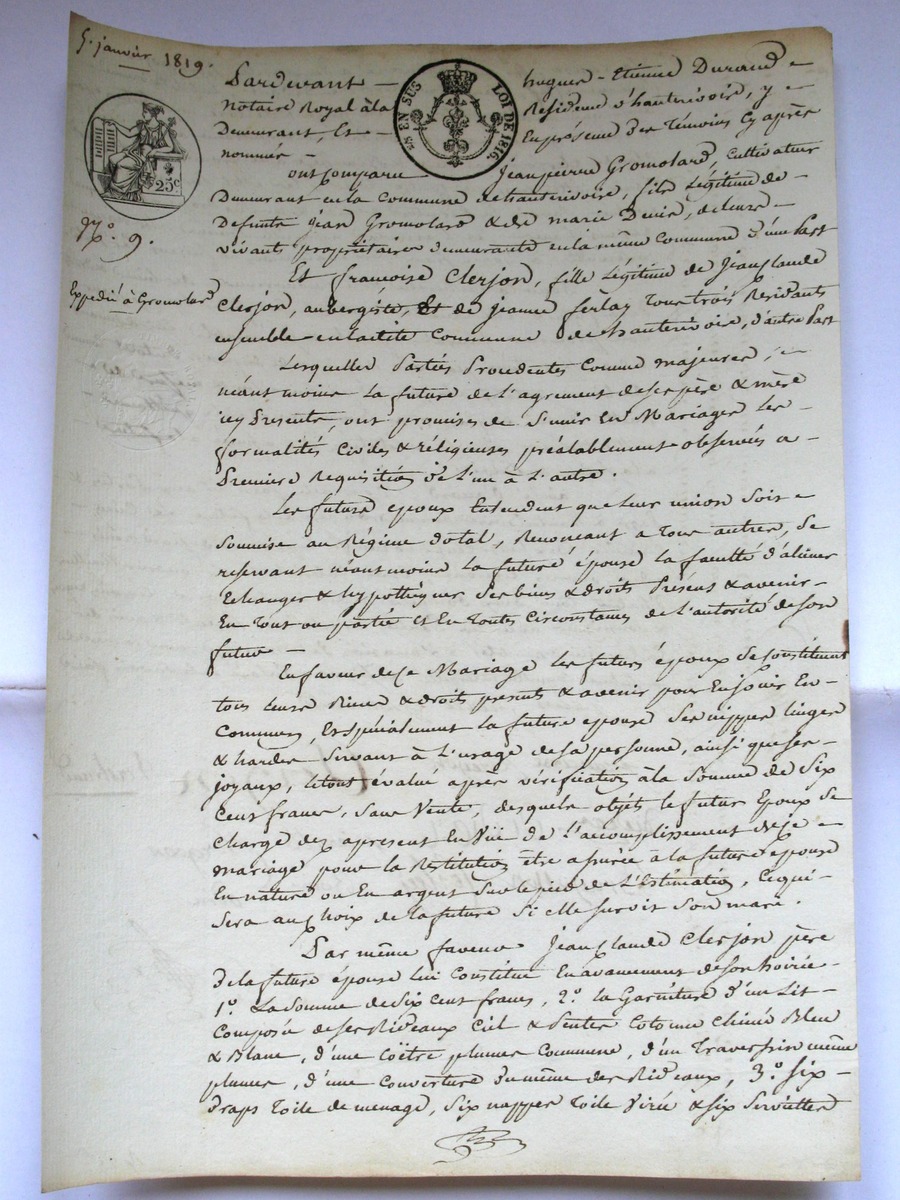 5. janvier 1819.
EN SUS
LOI DE 1816.
25c
N.º 9.
Expedié à Gromolard
Pardevant hugues-Etienne Durand
notaire Royal à la Residence d'hauterivoire, y
Demeurant Et En présence des Témoins Cy après
nommés
ont Comparu Jean pierre Gromolard, Cultivateur
Demeurant en la Commune de hauterivoire, fils Légitime de
Defunts Jean Gromolard & de marie Denis, de leurs
vivant propriétaires demeurants en la même Commune d'une Part
Et françoise Clerjon, fille Légitime de Jean Claude
Clerjon, aubergiste, Et de jeanne ferlay Tous trois Residants
ensemble en ladite Commune de hauterivoire, d'autre Part
Lesquelles Parties Procedentes Comme majeures,
néant moins La future de L'agrement de ses père & mère
icy Presents, ont promises de S'unir En Mariages Les
formalités Civiles & réligieuses préalablement observées a
Premiere Requisition de L'un à L'autre.
Les futurs epoux Entendent que Leur union Soit
Soumise au Régime dotal, Renoncant a Tous autres, Se
reservant néant moins La future épouse La faculté d'aliéner
Echanger & hypothéquer Ses biens & droits Présens & avenir
En Tout ou partie Et En Toutes Circonstances de L'autorité de son
futur
En faveur de Ce Mariage Les futurs époux Se Constituent
tous Leurs Biens & droits presents & avenir pour En jouir En
Commun, Et Spécialement La future epouse Ses nippes linges
& hardes Servant à L'usage de sa personne, ainsi que ses
joyaux, Le tout évalué après vérification à la Somme de Six
Cent francs, Sans Vente, desquels objets Le futur Epoux Se
Charge dez apresent En Vüe de L'accomplissement de Ce
mariage pour La Restitution être assurée à La future épouse
En nature ou En argent Sur le pied de L'Estimation, Ce qui
Sera au Choix de la future Si elle survit Son mari.
Par même faveur Jean Claude Clerjon père
de La future épouse Lui Constitue En avancement de son hoirie
1.º La Somme de Six Cent francs, 2.º La Garniture d'un Lit
Composée de Ses Rideaux Ciel & Pentes Cotonne Chinée Bleu
& Blanc, d'une Coëtre plumes Commune, d'un Traversin même
plumes, d'une Couverture du même des Rideaux, 3.º Six
draps Toile de menage, Six nappes Toile Virée & Six Serviettes